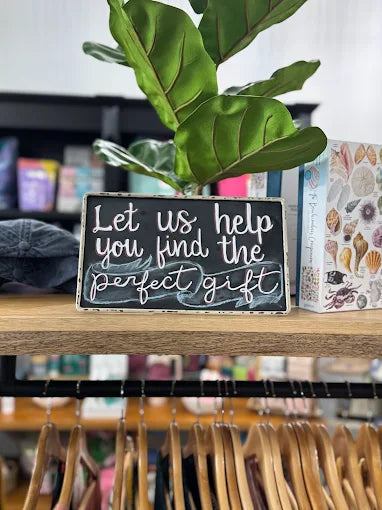 Let us help
you find the
perfect gift